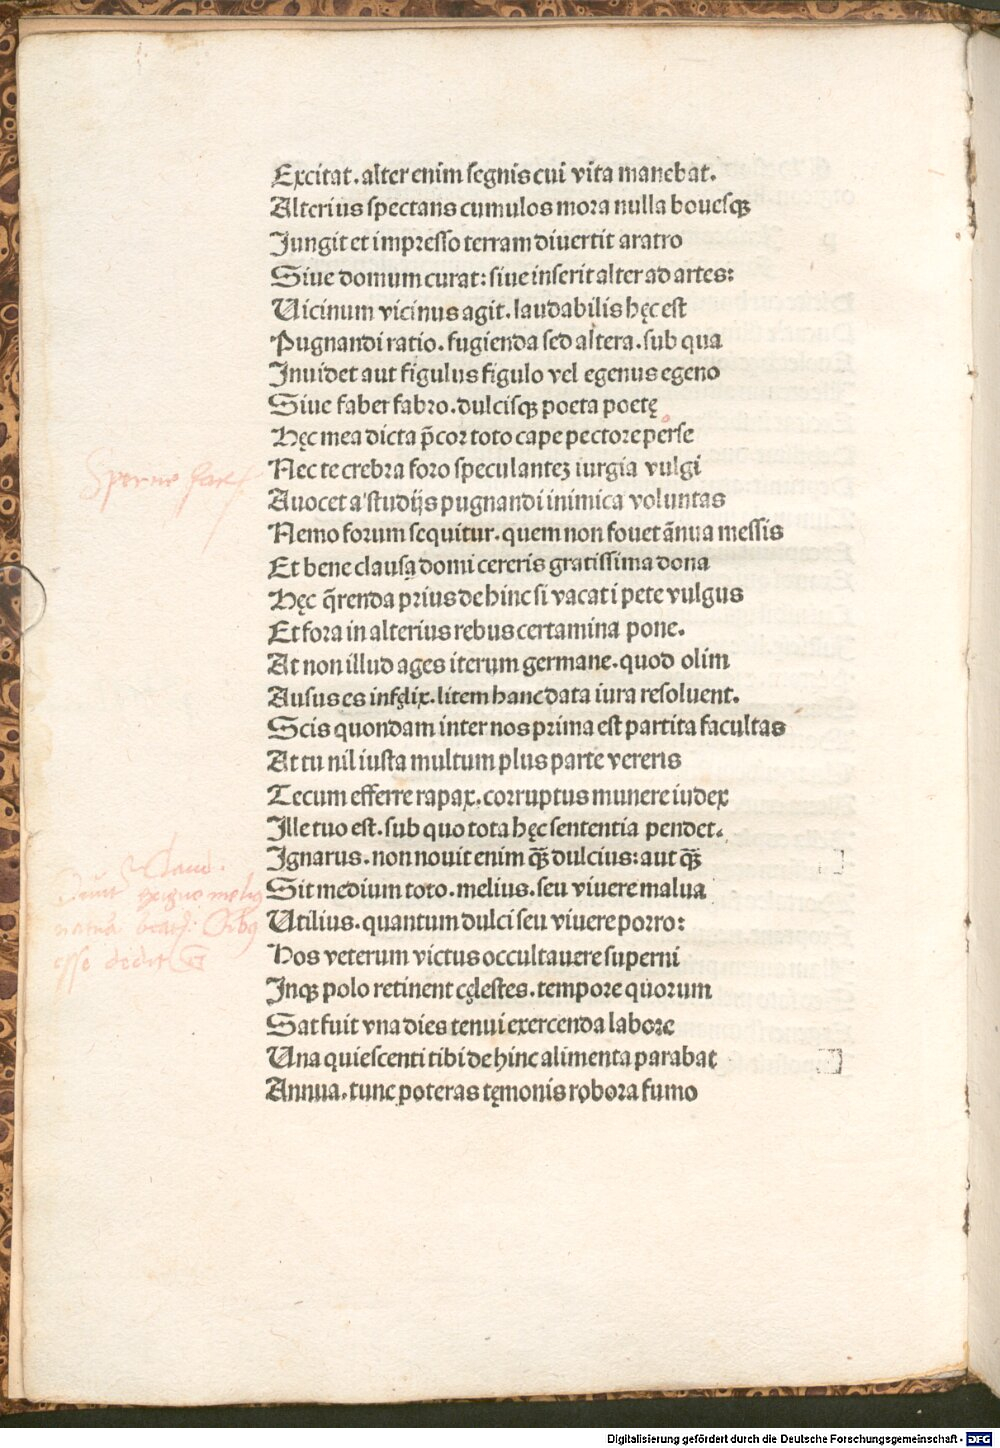 Excitat. alter enim segnis cui vita manebat.
Alterius spectans cumulos mora nulla bouesqꝫ
Jungit et impresso terram diuertit aratro
Siue domum curat: siue inserit alter ad artes:
Uicinum vicinus agit. laudabilis hęc est
Pugnandi ratio. fugienda sed altera. sub qua
Inuidet aut figulus figulo vel egenus egeno
Siue faber fabro. dulcisqꝫ poeta poetę
Hęc mea dicta p̄cor toto cape pectore perse
Nec te crebra foro speculanteꝫ iurgia vulgi
Auocet a studijs pugnandi inimica voluntas
Nemo forum sequitur. quem non fouet ānua messis
Et bene clausa domi cereris gratissima dona
Hęc q̄renda prius dehinc si vacat i pete vulgus
Et fora in alterius rebus certamina pone.
At non illud ages iterum germane. quod olim
Ausus es infęlix. litem hanc data iura resoluent.
Scis quondam inter nos prima est partita facultas
At tu nil iusta multum plus parte vereris
Tecum efferre rapax. corruptus munere iudex
Ille tuo est. sub quo tota hęc sententia pendet.
Ignarus. non nouit enim qꝫ̄ dulcius: aut qꝫ̄
Sit medium toto. melius. seu viuere malua
Utilius. quantum dulci seu viuere porro:
Hos veterum victus occultauere superni
Inqꝫ polo retinent cęlestes. tempore quorum
Sat fuit vna dies tenui exercenda labore
Una quiescenti tibi dehinc alimenta parabat
Annua. tunc poteras tęmonis robora fumo
Claud.
exiguo meliꝰ
esse dedit
Digitalisierung gefördert durch die Deutsche Forschungsgemeinschaft - DFG